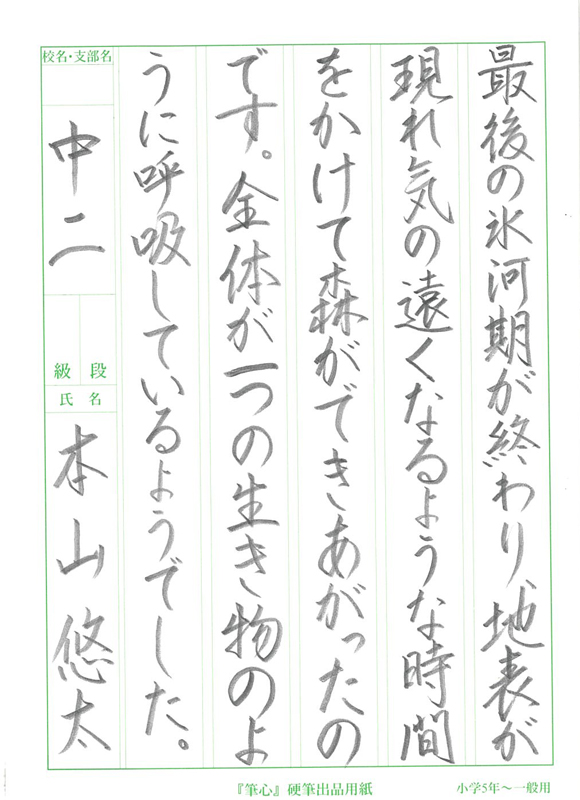 最後の氷河期が終わり、地表が
現れ気の遠くなるような時間
をかけて森ができあがったの
です。全体が一つの生き物のよ
うに呼吸しているようでした。
校名・支部名
中二
級 段
氏 名
本山悠太
『筆心』硬筆出品用紙
小学5年～一般用